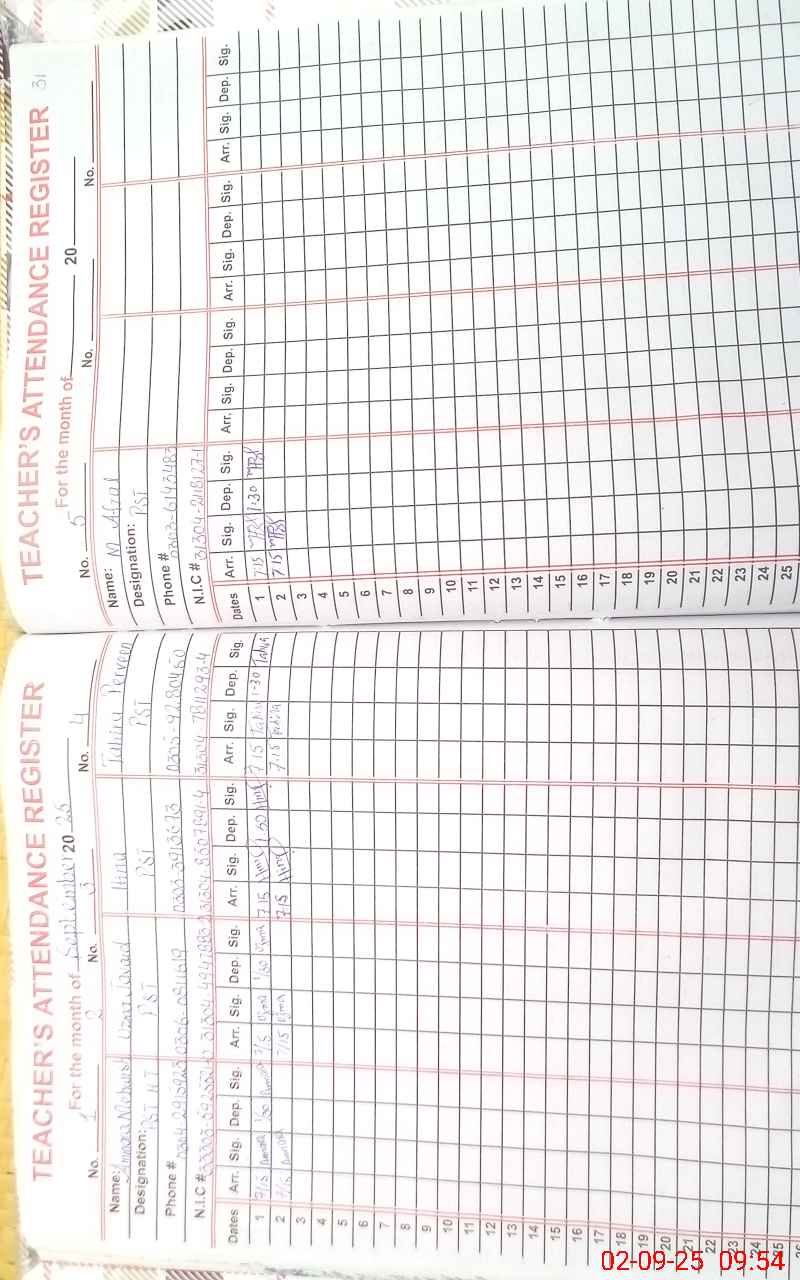 TEACHER'S ATTENDANCE REGISTER
For the month of September 2025
No. 1 No. 2 No. 3 No. 4
Name: Javaid Hina Tahira Perveen
Designation: PST HT PST PST PST
Phone # 0303-9280450
N.I.C #
Dates Arr. Sig. Dep. Sig. Arr. Sig. Dep. Sig. Arr. Sig. Dep. Sig. Arr. Sig. Dep. Sig.
1 7/15 1/30 7/15 1/30 7.15 1.30 7.15 Tahira 1-30 Tahira
2 7/15 7/15 7.15 7.15 Tahira
3
4
5
6
7
8
9
10
11
12
13
14
15
16
17
18
19
20
21
22
23
24
25
26
TEACHER'S ATTENDANCE REGISTER 31
No. 5 For the month of 20
No. No.
Name: M Afzal
Designation: PST
Phone # 0303-6143483
N.I.C # 31304-2118127-1
Dates Arr. Sig. Dep. Sig. Arr. Sig. Dep. Sig. Arr. Sig. Dep. Sig. Arr. Sig. Dep. Sig.
1 7:15 1:30
2 7:15
3
4
5
6
7
8
9
10
11
12
13
14
15
16
17
18
19
20
21
22
23
24
25
02-09-25 09:54